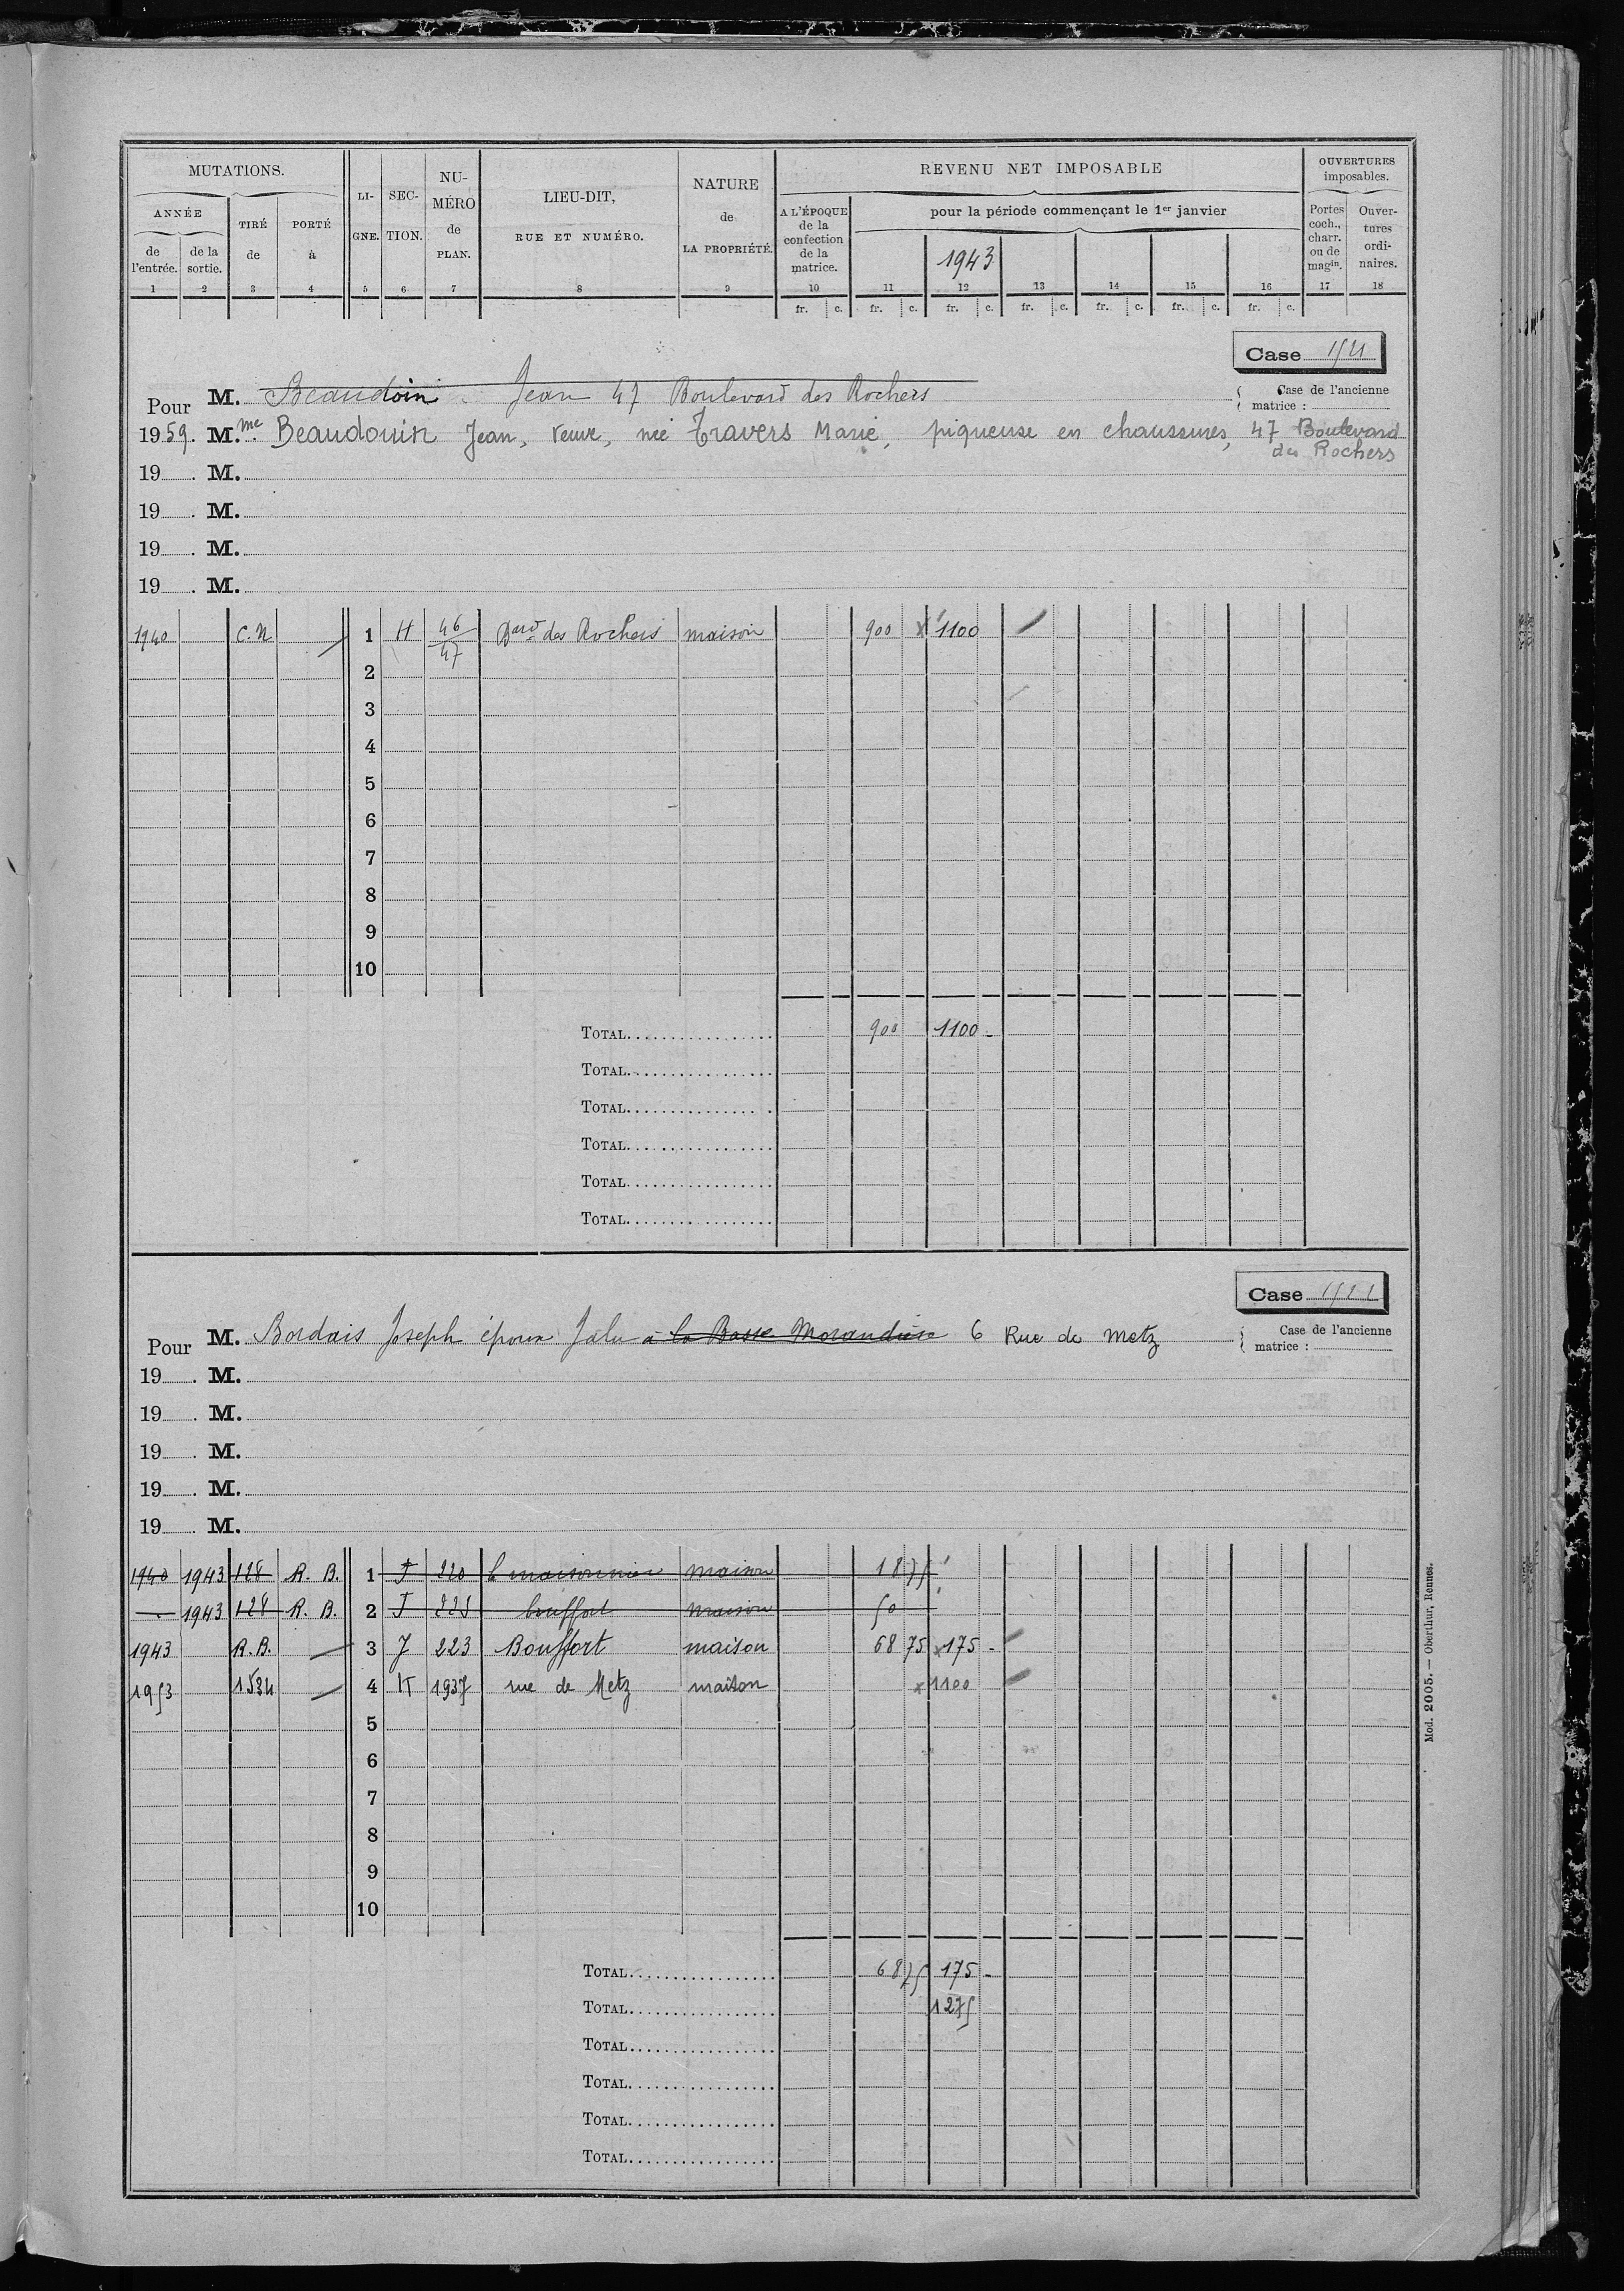 MUTATIONS.
ANNÉE
de l'entrée.
de la sortie.
TIRÉ de
PORTÉ à
LI-GNE.
SEC-TION.
NU-MÉRO de PLAN.
LIEU-DIT,
RUE ET NUMÉRO.
NATURE
de
LA PROPRIÉTÉ.
REVENU NET IMPOSABLE
A L'ÉPOQUE de la confection de la matrice.
pour la période commençant le 1er janvier
1943
OUVERTURES imposables.
Portes coch., charr. ou de magin.
Ouver-tures ordi-naires.
1 2 3 4 5 6 7 8 9 10 11 12 13 14 15 16 17 18
fr. c. fr. c. fr. c. fr. c. fr. c. fr. c. fr. c.
Case 1521
Case de l'ancienne matrice :
Pour M. Beaudoin Jean 47 Boulevard des Rochers
1959. M.me Beaudouin Jean, veuve, née Travers Marie, piqueuse en chaussures, 47 Boulevard
des Rochers
19 . M.
19 . M.
19 . M.
19 . M.
1940 C.N 1 H 46/47 Bard des Rochers maison 900 x 1100
2
3
4
5
6
7
8
9
10
TOTAL 900 1100 -
TOTAL
TOTAL
TOTAL
TOTAL
TOTAL
Case 1522
Case de l'ancienne matrice :
Pour M. Bordais Joseph époux Jalu a la Basse Morandière 6 Rue de Metz
19 . M.
19 . M.
19 . M.
19 . M.
19 . M.
1940 1943 128 R. B. 1 J 220 maison 18 75
1943 128 R. B. 2 J 223 bouffort maison 50
1943 R.B. 3 J 223 Bouffort maison 68 75 x 175 -
1953 1534 4 K 1937 rue de Metz maison x 1100
5
6
7
8
9
10
TOTAL 68 75 175 -
TOTAL 1275
TOTAL
TOTAL
TOTAL
TOTAL
Mod. 2005. — Oberthur, Rennes.